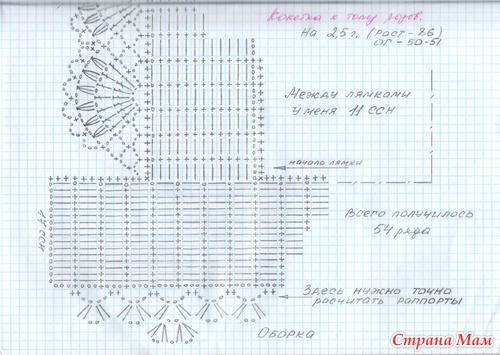 Кокетка к топу розов.
На 2,5 г. (раст - 86)
ОГ - 50-51
Между лямками
у меня 11 ССН
начало лямки
Всего получилось
54 ряда
Здесь нужно точно
расчитать раппорты
ОБОРКА
Страна Мам